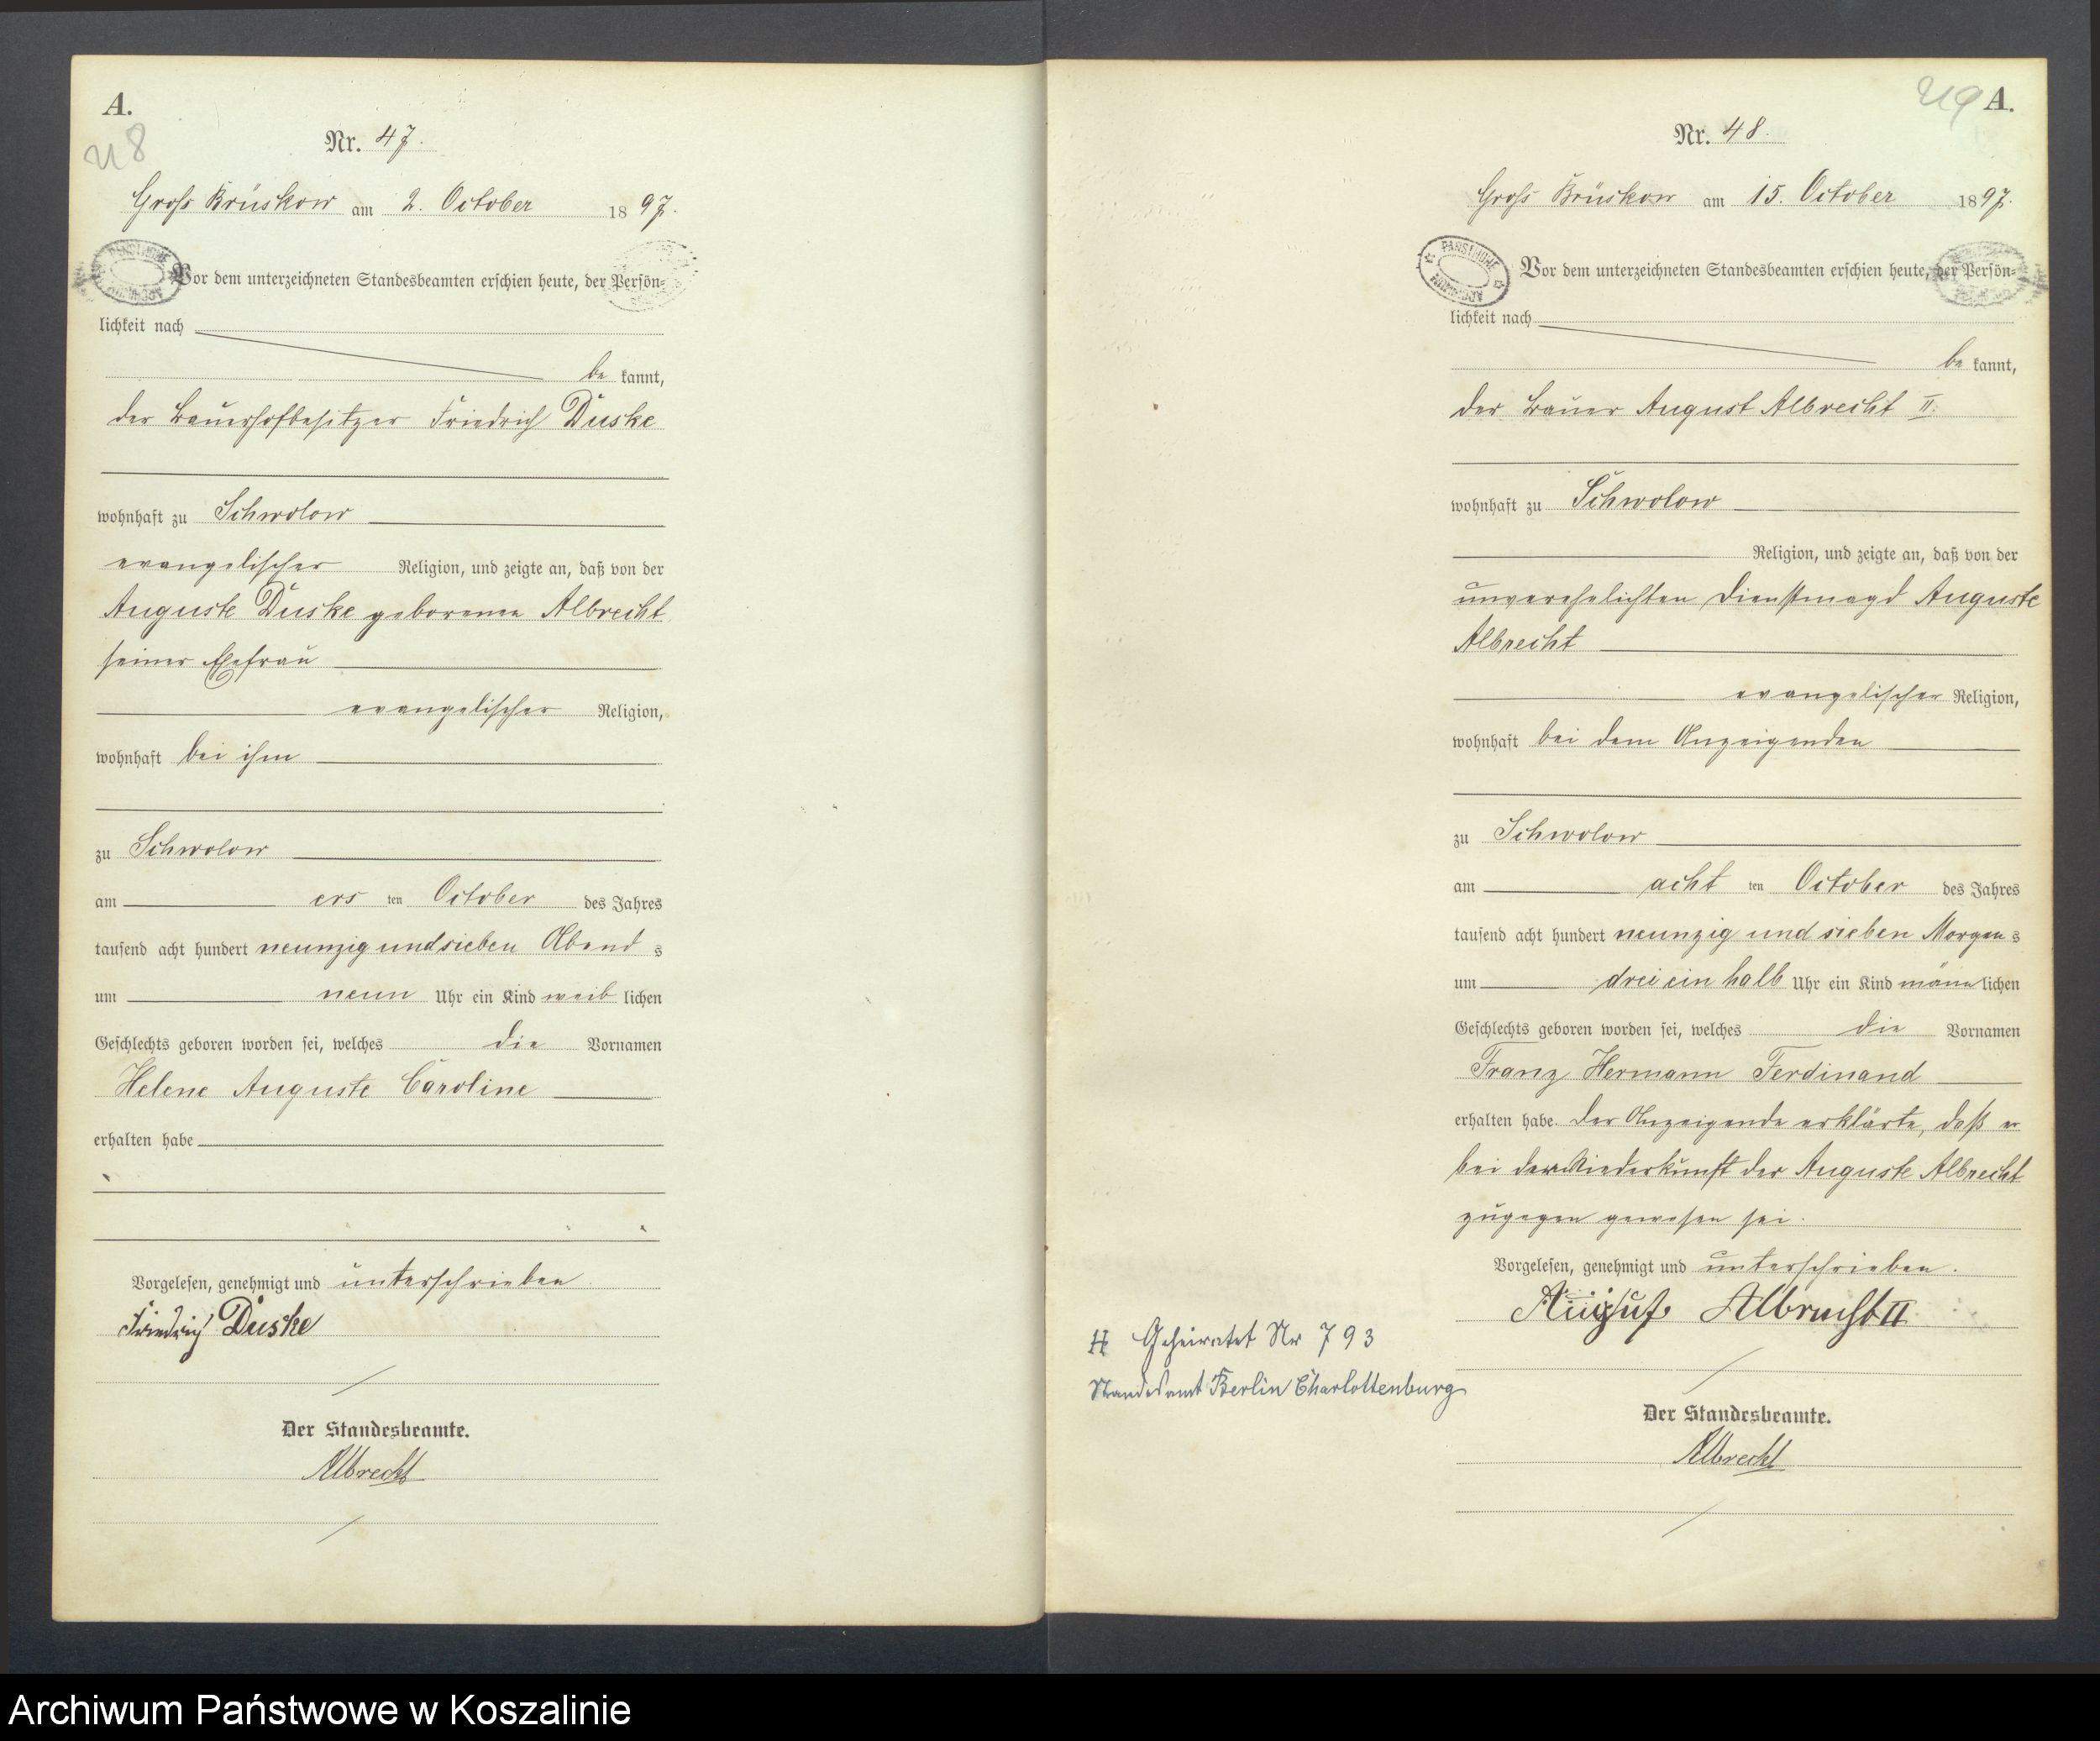 A.
218
Nr. 47.
Gross Brüskow am 2. October 1897.
PAŃSTWOWE ARCHIWUM
Vor dem unterzeichneten Standesbeamten erschien heute, der Persön-
lichkeit nach
be kannt,
der Bauerhofbesitzer Friedrich Duske
wohnhaft zu Schwolow
evangelischer Religion, und zeigte an, daß von der
Auguste Duske geborenen Albrecht
seiner Ehefrau
evangelischer Religion,
wohnhaft bei ihm
zu Schwolow
am ers ten October des Jahres
tausend acht hundert neunzig und sieben Abend s
um neun Uhr ein Kind weib lichen
Geschlechts geboren worden sei, welches die Vornamen
Helene Auguste Caroline
erhalten habe
Vorgelesen, genehmigt und unterschrieben
Friedrich Duske
Der Standesbeamte.
Albrecht
219 A.
Nr. 48.
Gross Brüskow am 15. October 1897.
PAŃSTWOWE ARCHIWUM
Vor dem unterzeichneten Standesbeamten erschien heute, der Persön-
lichkeit nach
be kannt,
der Bauer August Albrecht II.
wohnhaft zu Schwolow
Religion, und zeigte an, daß von der
unverehelichten Dienstmagd Auguste
Albrecht
evangelischer Religion,
wohnhaft bei dem Anzeigenden
zu Schwolow
am acht ten October des Jahres
tausend acht hundert neunzig und sieben Morgen s
um drei ein halb Uhr ein Kind männ lichen
Geschlechts geboren worden sei, welches die Vornamen
Franz Hermann Ferdinand
erhalten habe. Der Anzeigende erklärte, daß er
bei der Niederkunft der Auguste Albrecht
zugegen gewesen sei.
Vorgelesen, genehmigt und unterschrieben.
August Albrecht II
H Geheiratet Nr 793
Standesamt Berlin Charlottenburg
Der Standesbeamte.
Albrecht
Archiwum Państwowe w Koszalinie